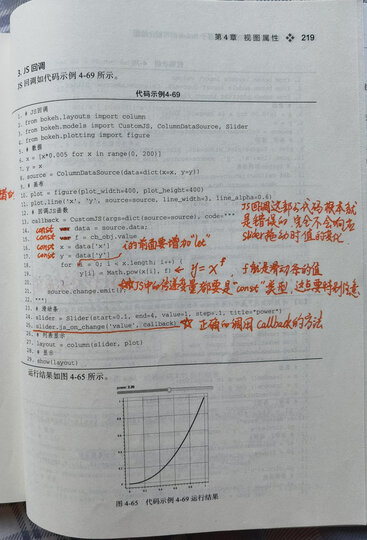 第4章 视图属性 ❖ 219
3. JS 回调
JS 回调如代码示例 4-69 所示。
代码示例4-69
1. # JS回调
2. from bokeh.layouts import column
3. from bokeh.models import CustomJS, ColumnDataSource, Slider
4. from bokeh.plotting import figure
5. # 数据
6. x = [x*0.005 for x in range(0, 200)]
7. y = x
8. source = ColumnDataSource(data=dict(x=x, y=y))
9. # 画布
10. plot = figure(plot_width=400, plot_height=400)
11. plot.line('x', 'y', source=source, line_width=3, line_alpha=0.6)
12. # 回调JS函数
13. callback = CustomJS(args=dict(source=source), code="""
JS回调这部分代码根本就
是错误的 完全不会响应
slider拖动时值的变化
14. const var data = source.data;
15. const var f = cb_obj.value
16. const x = data['x']
i的前面要增加"let"
17. const y = data['y']
18. for (i = 0; i < x.length; i++) {
19. y[i] = Math.pow(x[i], f)
← y = x^f , f就是滑动条的值
20. }
JS中的传递变量都要是"const"类型, 这点要特别注意
21. source.change.emit();
22. """)
23. # 滑动条
24. slider = Slider(start=0.1, end=4, value=1, step=.1, title="power")
25. slider.js_on_change('value', callback)
☆ 正确的调用callback的方法
26. # 列表显示
27. layout = column(slider, plot)
28. # 显示
29. show(layout)
运行结果如图 4-65 所示。
图 4-65 代码示例 4-69 运行结果